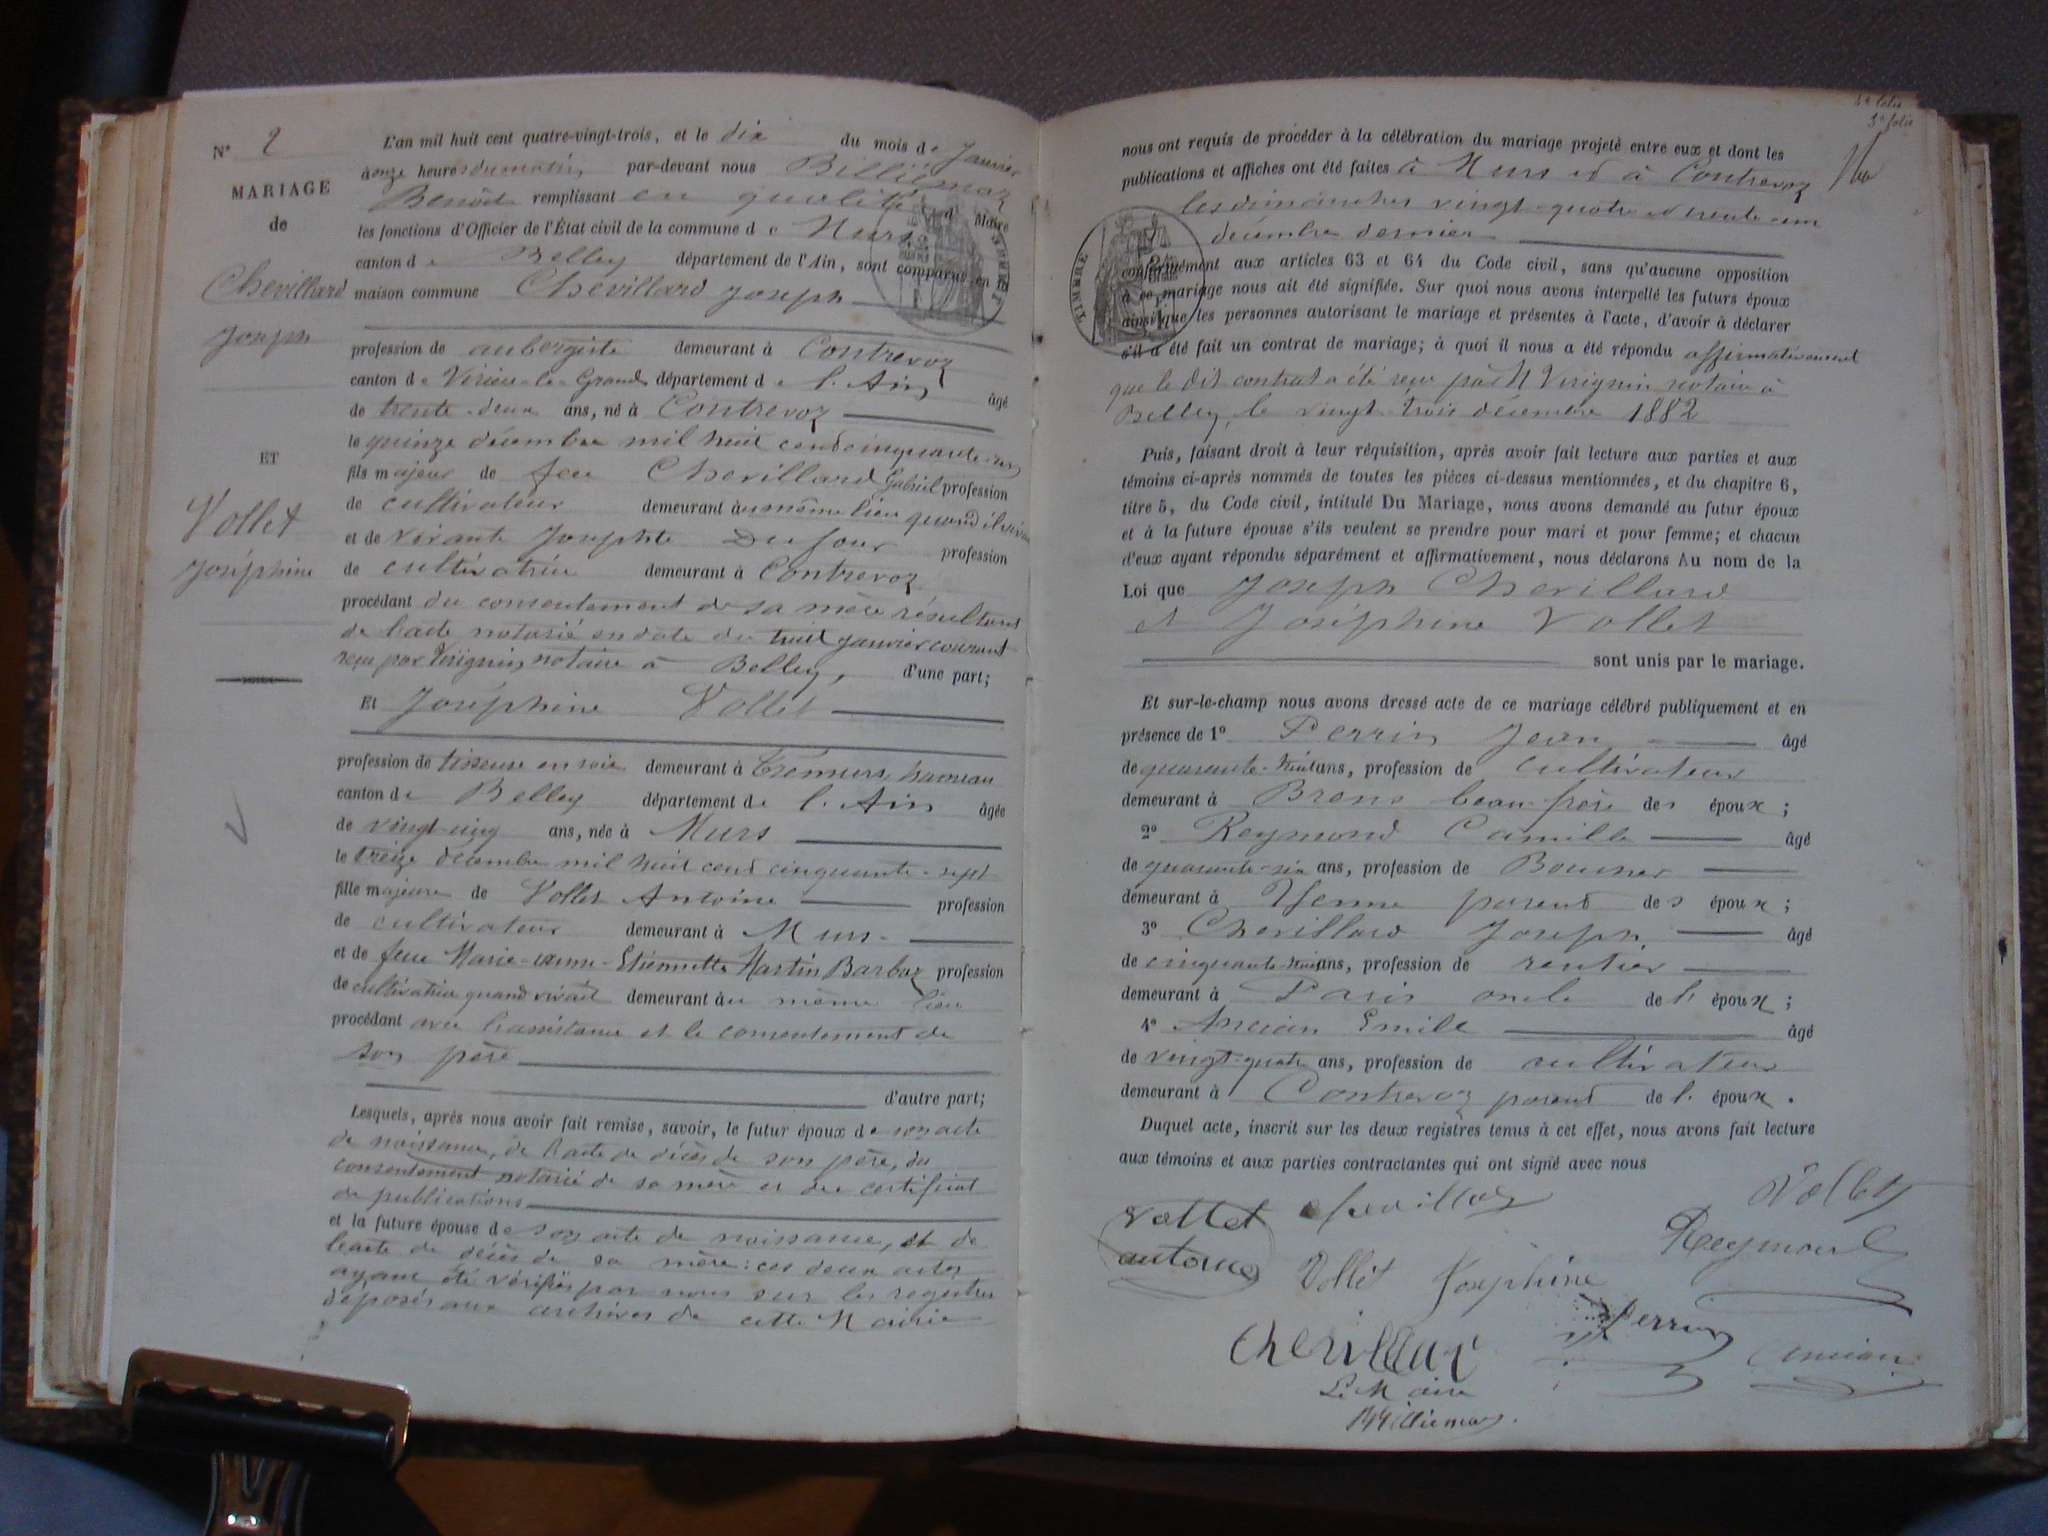 N° 2
MARIAGE
de
Chevillard
Joseph
ET
Vollet
Joséphine
L'an mil huit cent quatre-vingt-trois, et le dix du mois de Janvier
à onze heures du matin, par-devant nous Billiemaz
Benoît remplissant en qualité de Maire
les fonctions d'Officier de l'État civil de la commune de Murs
canton de Belley département de l'Ain, sont comparus en la
maison commune Chevillard Joseph
profession de aubergiste demeurant à Contrevoz
canton de Virieu-le-Grand département de l'Ain âgé
de trente-deux ans, né à Contrevoz
le quinze décembre mil huit cent cinquante
fils majeur de feu Chevillard Gabriel profession
de cultivateur demeurant au même lieu quand il vivait
et de vivante Josephte Dufour profession
de cultivatrice demeurant à Contrevoz
procédant du consentement de sa mère résultant
de l'acte notarié en date du huit janvier courant
reçu par Verignin, notaire à Belley, d'une part;
Et Joséphine Vollet
profession de tisseuse en soie demeurant à Crémieux hameau
canton de Belley département de l'Ain âgée
de vingt-cinq ans, née à Murs
le treize décembre mil huit cent cinquante-sept
fille majeure de Vollet Antoine profession
de cultivateur demeurant à Murs
et de feue Marie-Etiennette Martin Barbaz profession
de cultivatrice quand vivait demeurant au même lieu
procédant avec l'assistance et le consentement de
son père
d'autre part;
Lesquels, après nous avoir fait remise, savoir, le futur époux de son acte
de naissance, de l'acte de décès de son père, du
consentement notarié de sa mère et du certificat
de publications
et la future épouse de son acte de naissance, et de
l'acte de décès de sa mère: ces deux actes
ayant été vérifiés par nous sur les registres
déposés aux archives de cette Mairie
4e folio
3e folio
nous ont requis de procéder à la célébration du mariage projeté entre eux et dont les
publications et affiches ont été faites à Murs et à Contrevoz
les dimanches vingt-quatre et trente-un
décembre dernier
TIMBRE
conformément aux articles 63 et 64 du Code civil, sans qu'aucune opposition
à ce mariage nous ait été signifiée. Sur quoi nous avons interpellé les futurs époux
ainsi que les personnes autorisant le mariage et présentes à l'acte, d'avoir à déclarer
s'il a été fait un contrat de mariage; à quoi il nous a été répondu affirmativement
que le dit contrat a été reçu par M Verignin notaire à
Belley, le vingt-trois décembre 1882
Puis, faisant droit à leur réquisition, après avoir fait lecture aux parties et aux
témoins ci-après nommés de toutes les pièces ci-dessus mentionnées, et du chapitre 6,
titre 5, du Code civil, intitulé Du Mariage, nous avons demandé au futur époux
et à la future épouse s'ils veulent se prendre pour mari et pour femme; et chacun
d'eux ayant répondu séparément et affirmativement, nous déclarons Au nom de la
Loi que Joseph Chevillard
et Joséphine Vollet
sont unis par le mariage.
Et sur-le-champ nous avons dressé acte de ce mariage célébré publiquement et en
présence de 1° Perrin Jean âgé
de quarante-huit ans, profession de cultivateur
demeurant à Brens beau-frère des époux;
2° Reymond Camille âgé
de quarante-six ans, profession de
demeurant à Yenne parent des époux;
3° Chevillard Joseph âgé
de cinquante-huit ans, profession de rentier
demeurant à Paris oncle de l'époux;
4° Ancian Emile âgé
de vingt-quatre ans, profession de cultivateur
demeurant à Contrevoz parent de l'époux.
Duquel acte, inscrit sur les deux registres tenus à cet effet, nous avons fait lecture
aux témoins et aux parties contractantes qui ont signé avec nous
vollet chevillard Vollet
antoine Vollet Joséphine Reymond
Chevillard Perrin Ancian
Le Maire
Billiemaz